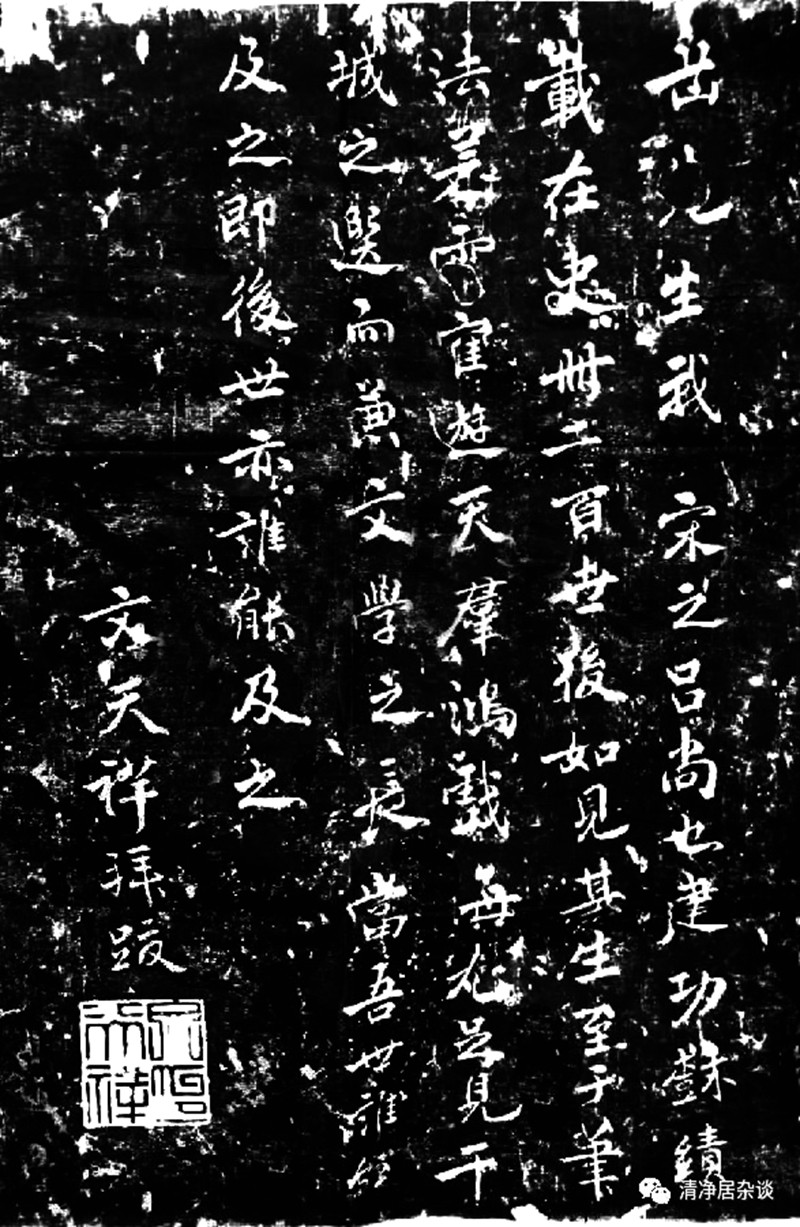 岳先生我 宋之呂尚也建功樹績
載在史冊千百世後如見其生至于筆
法若雲雀遊天羣鴻戲海尤足見干
城之選而兼文學之長當吾世誰能
及之即後世亦誰能及之
文天祥拜跋
清净居杂谈